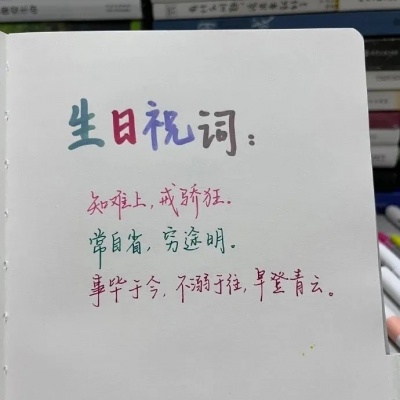 生日祝词：
知难上，戒骄狂。
常自省，穷途明。
事毕于今，不溺于往，早登青云。